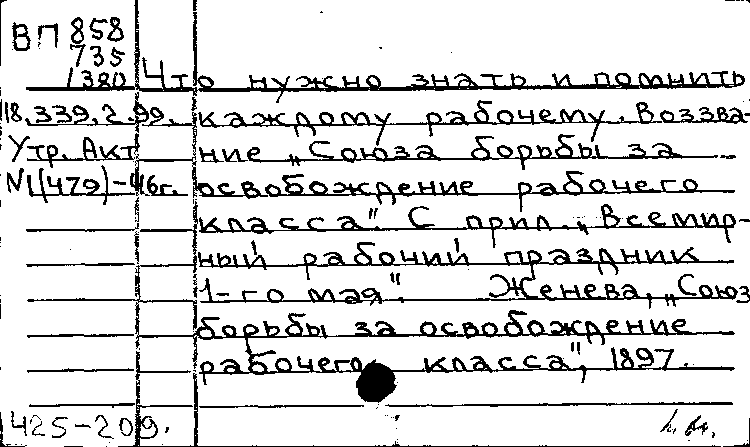 ВП 858
735
1380 Что нужно знать и помнить
18.339.2.99. каждому рабочему. Воззва-
Утр. Акт ние „Союза борьбы за
N1(479)-46г. освобождение рабочего
класса". С прил. „Всемир-
ный рабочий праздник
1-го мая". Женева, „Союз
борьбы за освобождение
рабочего класса", 1897.
425-209.